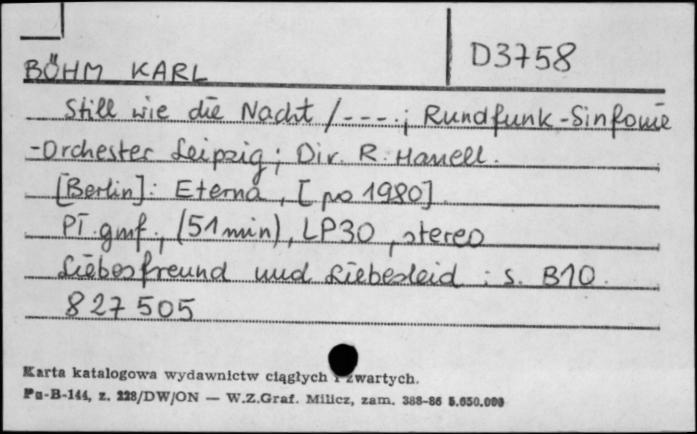 D3758
BÖHM KARL
Still wie die Nacht /----; Rundfunk-Sinfonie
-Orchester Leipzig; Dir. R. Hanell.
[Berlin]: Eterna, [po 1980].
Pł. gmf., (51 min), LP30, stereo
Liebesfreund und Liebesleid ; s. B10.
827505
Karta katalogowa wydawnictw ciągłych i zwartych.
Pu-B-144, z. 228/DW/ON — W.Z.Graf. Milicz, zam. 388-86 5.650.000